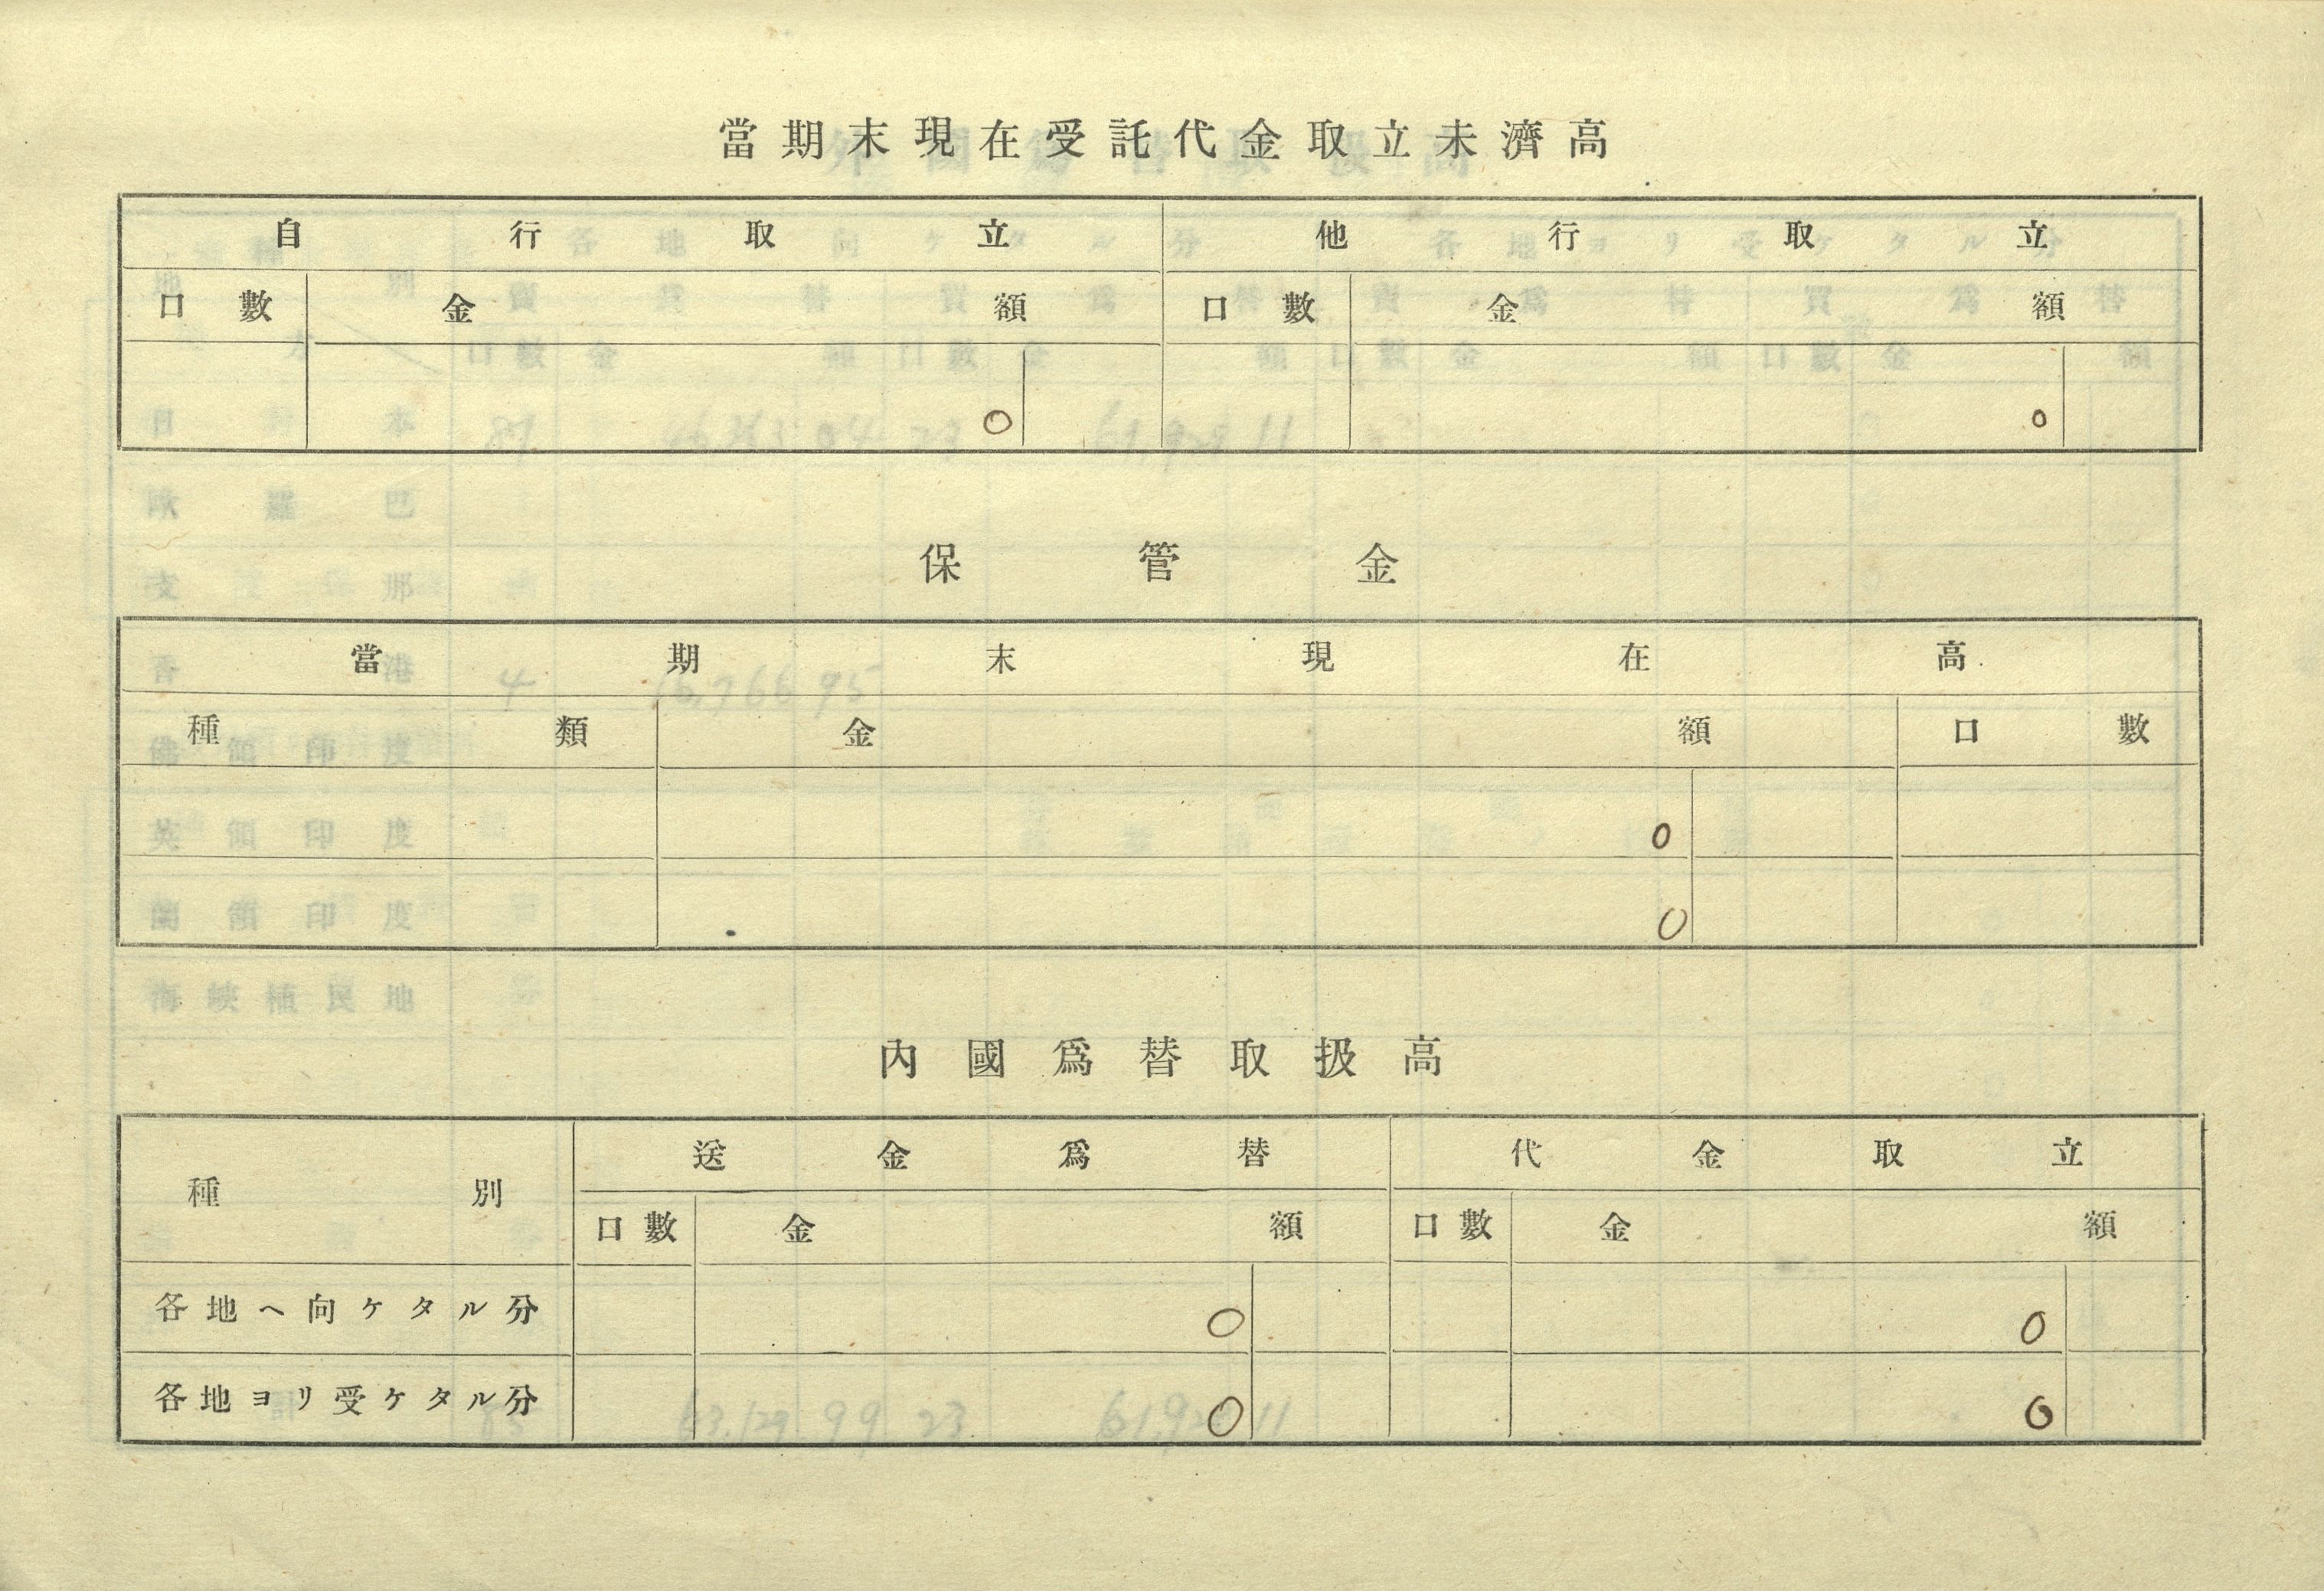 當期末現在受託代金取立未濟高
自行取立 他行取立
口數 金額 口數 金額
0 0
保管金
當期末現在高
種類 金額 口數
0
0
內國爲替取扱高
種別 送金爲替 代金取立
口數 金額 口數 金額
各地ヘ向ケタル分 0 0
各地ヨリ受ケタル分 0 0